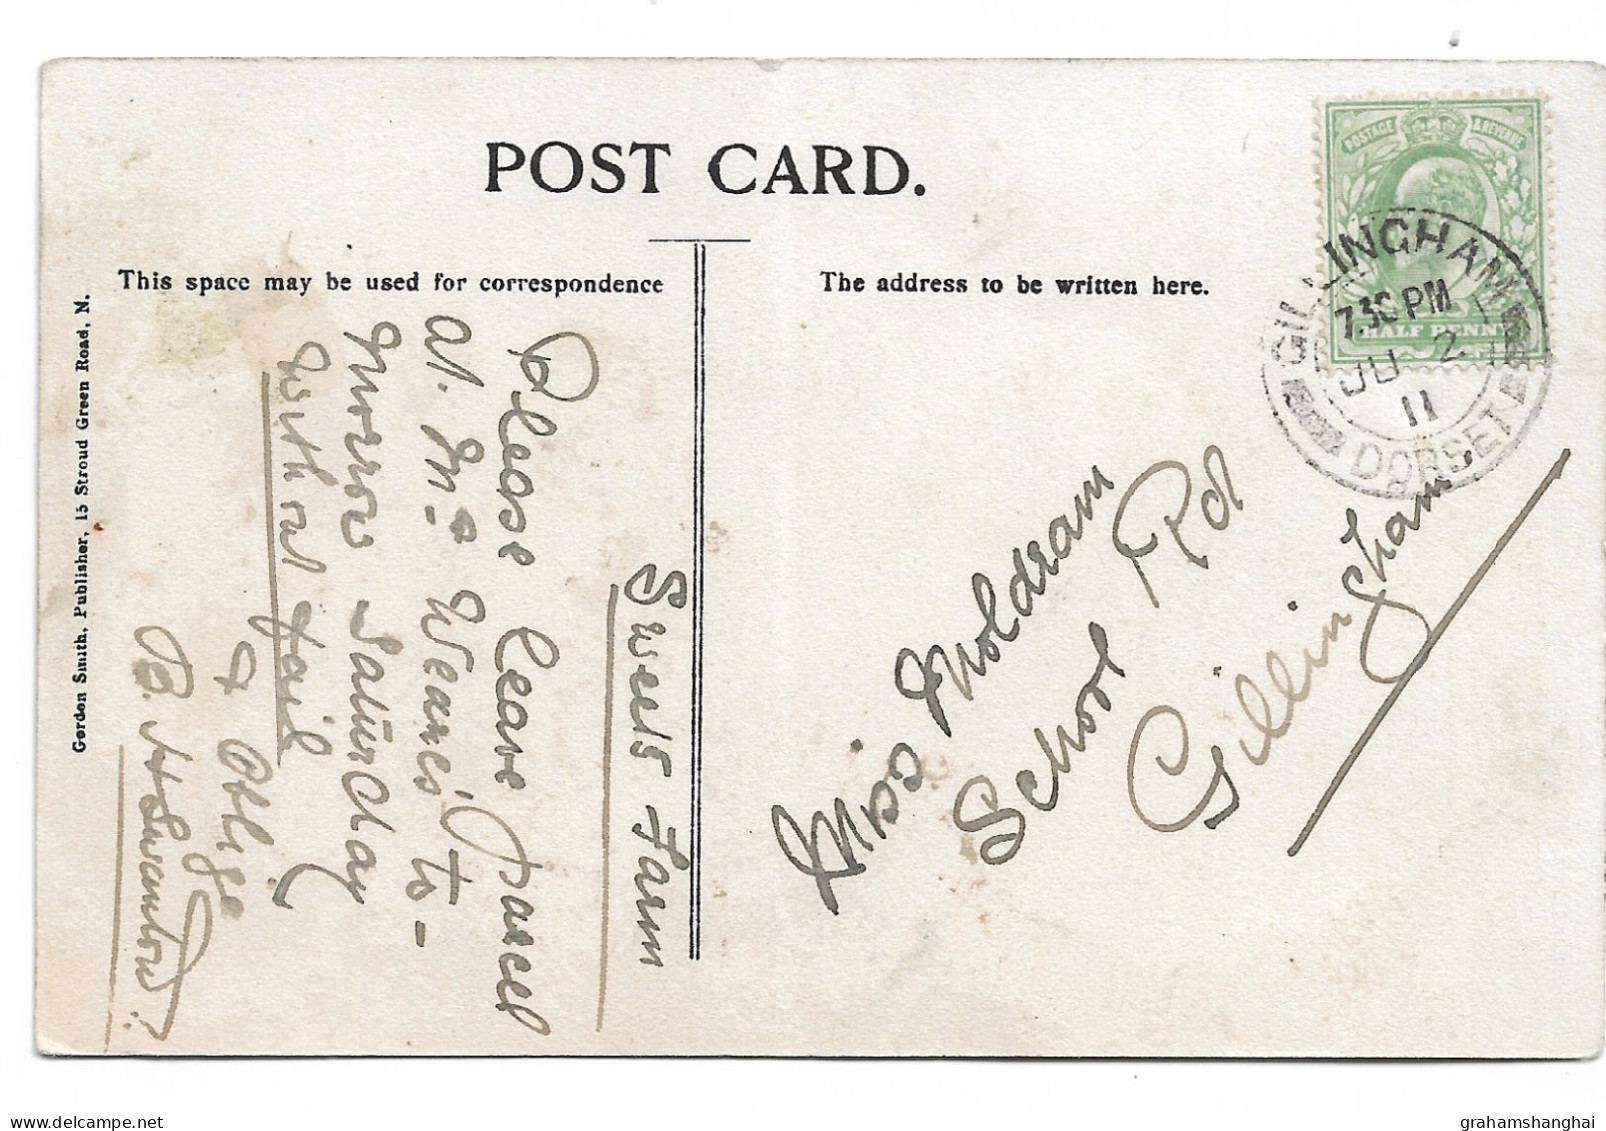 POST CARD.
This space may be used for correspondence
The address to be written here.
Gordon Smith, Publisher, 15 Stroud Green Road, N.
POSTAGE & REVENUE
HALF PENNY
GILLINGHAM
7.30 PM
JU 2
11
DORSET
Sweets Farm
Please leave parcel
at. Mrs Weares to-
Morrow Saturday
without fail
& oblige
B. H Swanton
Miss Moldram
School Rd
Gillingham
grahamshanghai